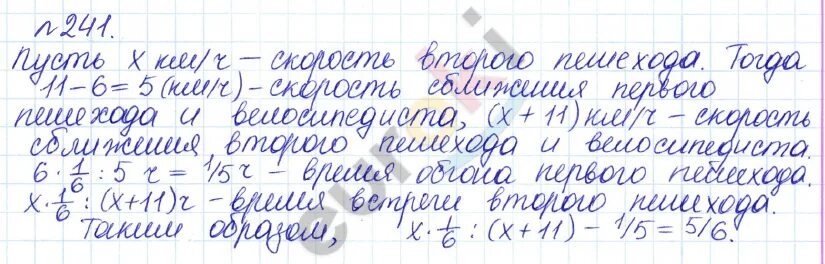 №241.
Пусть x км/ч – скорость второго пешехода. Тогда
11–6=5 (км/ч) – скорость сближения первого
пешехода и велосипедиста, (x+11) км/ч – скорость
сближения второго пешехода и велосипедиста.
6·1/6 : 5 ч = 1/5 ч – время обгона первого пешехода.
x·1/6 : (x+11) ч – время встречи второго пешехода.
Таким образом, x·1/6 : (x+11) – 1/5 = 5/6.
euroki